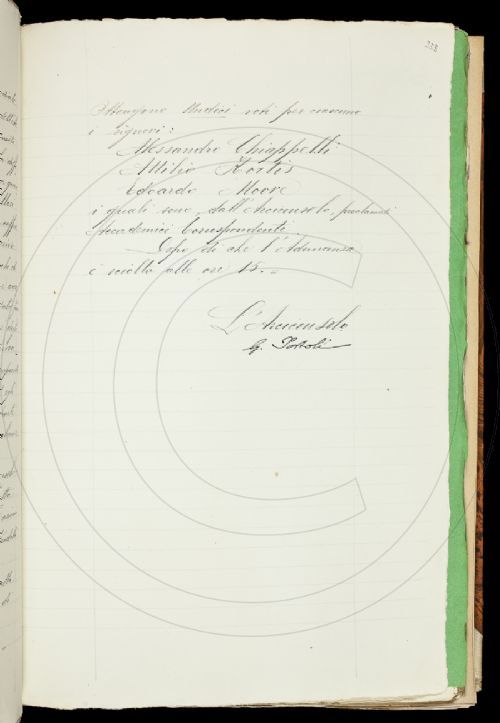 238
Ottengono undici voti per ciascuno
i signori:
Alessandro Chiappelli
Attilio Hortis
Edoardo Moore
i quali sono, dall'Arciconsolo, proclamati
Accademici Corrispondenti.
Dopo di che l'Adunanza
è sciolta alle ore 15. =
L'Arciconsolo
G. Tortoli